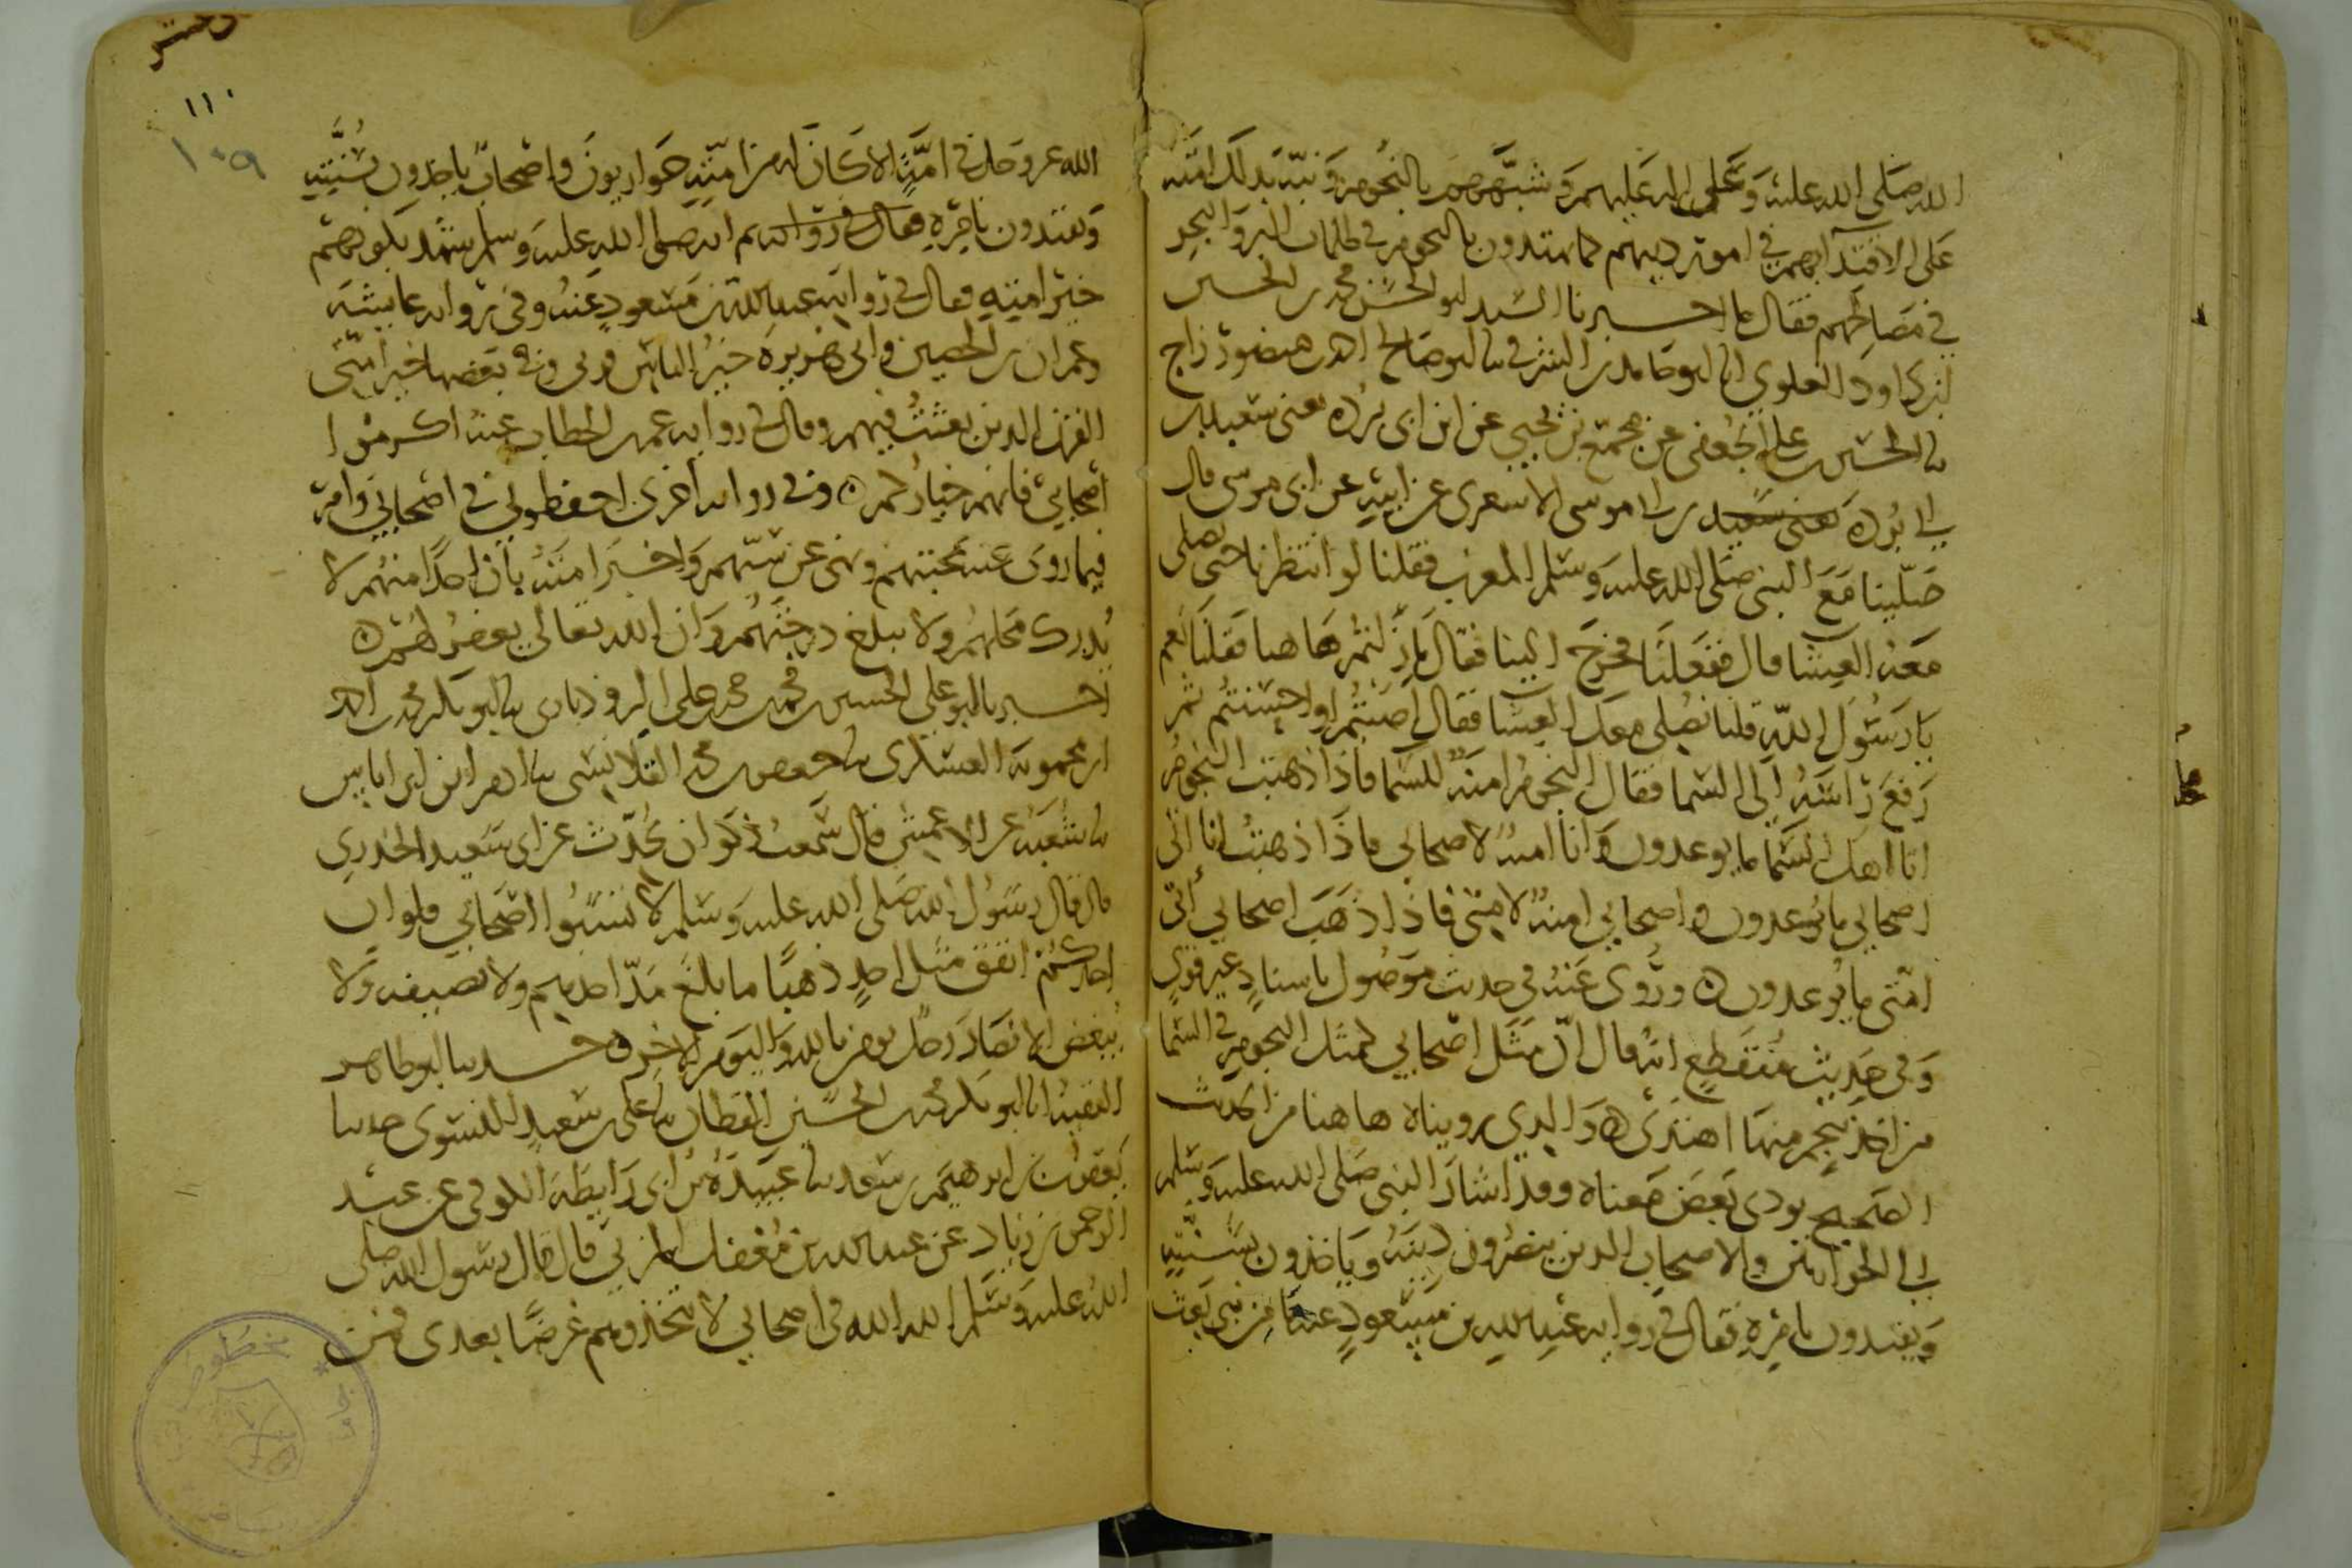 الله صلى الله عليه وعلى اله عليهم وشبههم بالنجوم ونبه بذلك امته
على الاقتداء بهم في امور دينهم كما يهتدون بالنجوم في ظلمات البر والبحر
في مصالحهم فقال ما اخبرنا السيد ابو الحسن محمد بن الحسين
بن داود العلوي انا ابو حامد بن الشرقي نا ابو صالح احمد بن منصور زاج
نا الحسين بن علي الجعفي عن مجمع بن يحيى عن ابن ابي برده يعني سعيد بن
ابي برده يعني سعيد بن ابي موسى الاشعري عن ابيه عن ابي موسى قال
صلينا مع النبي صلى الله عليه وسلم المغرب فقلنا لو انتظرنا حتى نصلي
معه العشا قال ففعلنا فخرج الينا فقال ما زلتم هاهنا فقلنا نعم
يا رسول الله قلنا نصلي معك العشا فقال اصبتم او احسنتم ثم
رفع راسه الى السما فقال النجوم امنه للسما فاذا ذهبت النجوم
اتا اهل السما ما يوعدون وانا امنه لاصحابي فاذا ذهبت انا اتى
اصحابي ما يوعدون واصحابي امنه لامتي فاذا ذهب اصحابي اتى
امتي ما يوعدون ه وروي عنه في حديث موصول باسناد غير قوي
وفي حديث منقطع انه قال ان مثل اصحابي كمثل النجوم في السما
من اخذ بنجم منها اهتدى ه والذي رويناه هاهنا من الحديث
الصحيح يودي بعض معناه وقد اشار النبي صلى الله عليه وسلم
الى الحواريين والاصحاب الذين ينصرون دينه وياخذون بسنته
ويقتدون بامره فقال في روايه عبد الله بن مسعود عنه ما من نبي بعثه
١١٠
١٠٩
الله عز وجل في امة الا كان له من امته حواريون واصحاب ياخذون بسنته
ويقتدون بامره وقال في روايه ثم انه صلى الله عليه وسلم شهد بكونهم
خير امته فقال في روايه عبد الله بن مسعود عنه وفي روايه عايشه
وعمران بن الحصين وابي هريره خير الناس قرني وفي بعضها خير امتي
القرن الذين بعثت فيهم وقال في روايه عمر بن الخطاب عنه اكرموا
اصحابي فانهم خياركم ه وفي روايه اخرى احفظوني في اصحابي وامر
فيما روي عنه بمحبتهم ونهى عن سبهم واخبر امته بان احدا منهم لا
يدرك محلهم ولا يبلغ درجتهم وان الله تعالى يغفر لهم ه
اخبرنا ابو علي الحسين بن محمد بن محمد بن علي الروذباري نا ابو بكر محمد بن احمد
ابن محمويه العسكري نا جعفر بن محمد القلانسي نا ادم ابن ابي اياس
نا شعبه عن الاعمش قال سمعت ذكوان يحدث عن ابي سعيد الخدري
قال قال رسول الله صلى الله عليه وسلم لا تسبوا اصحابي فلو ان
احدكم انفق مثل احد ذهبا ما بلغ مد احدهم ولا نصيفه ولا
يبغض الانصار رجل يومن بالله واليوم الاخر ه حدثنا ابو طاهر
الفقيه انا ابو بكر محمد بن الحسين القطان نا علي بن سعيد النسوي حدثنا
يعقوب بن ابرهيم بن سعد نا عبيدة بن ابي رايطه الكوفي عن عبد
الرحمن بن زياد عن عبد الله بن مغفل المزني قال قال رسول الله صلى
الله عليه وسلم الله الله في اصحابي لا تتخذوهم غرضا بعدي فمن